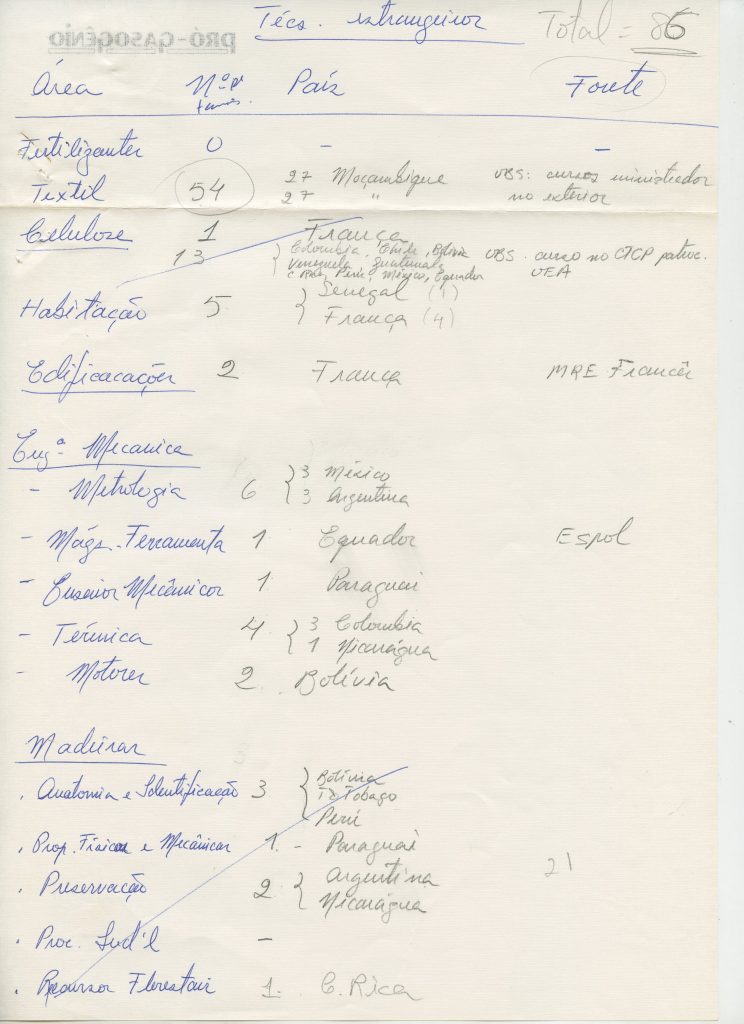 PRÓ-GASOGÊNIO
Técs. estrangeiros Total = 86
Área Nº País Fonte
Fertilizantes 0 - -
Textil 54 27 Moçambique OBS: cursos ministrados
27 " no exterior
Celulose 1 França
13 { Colombia, Chile, Bolívia OBS. curso no CTCP patroc.
Venezuela, Guatemala OEA
C. Rica, Peru, México, Equador
Habitação 5 { Senegal (1)
França (4)
Edificacações 2 França MRE Francês
Engª Mecanica
- Metrologia 6 { 3 México
3 Argentina
- Máqs. Ferramenta 1 Equador Espol
- Ensaios Mecânicos 1 Paraguai
- Térmica 4 { 3 Colombia
1 Nicarágua
- Motores 2 Bolívia
Madeiras
. Anatomia e Identificação 3 { Bolívia
Tobago
Perú
. Prop. Físicas e Mecânicas 1 - Paraguai
21
. Preservação 2 { Argentina
Nicarágua
. Proc. -
. Recursos Florestais 1. C. Rica